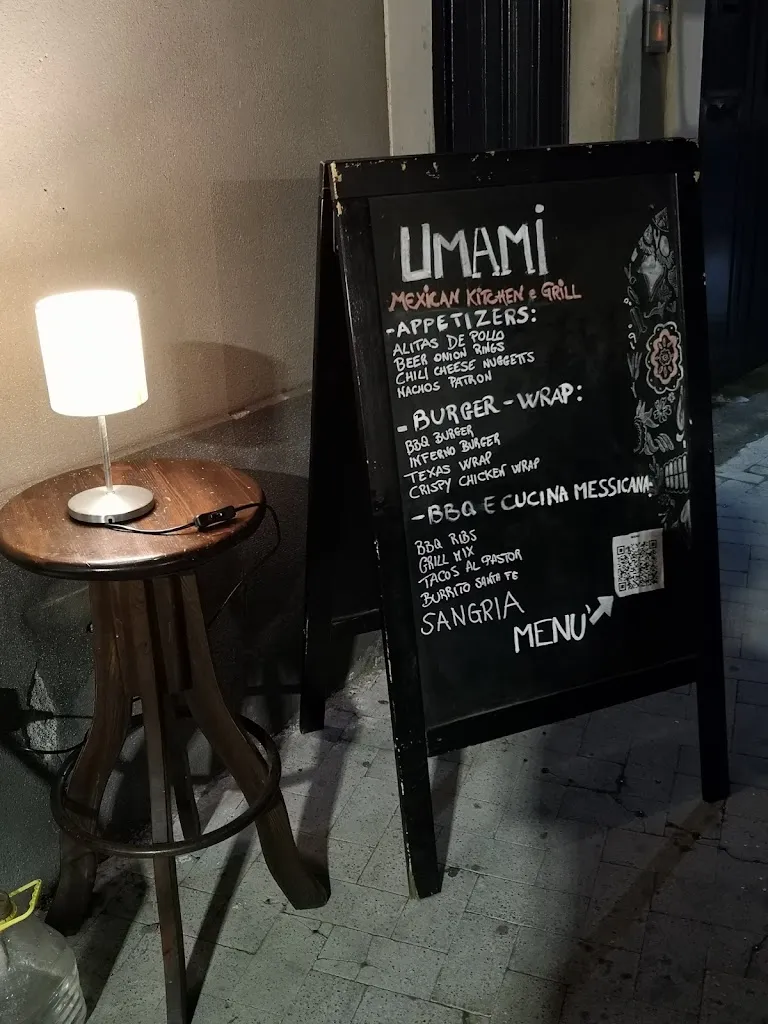 UMAMi
MEXICAN KITCHEN e GRILL
-APPETIZERS:
ALITAS DE POLLO
BEER ONION RINGS
CHILI CHEESE NUGGETTS
NACHOS PATRON
-BURGER-WRAP:
BBQ BURGER
INFERNO BURGER
TEXAS WRAP
CRISPY CHICKEN WRAP
-BBQ E CUCINA MESSICANA:
BBQ RIBS
GRILL MIX
TACOS AL PASTOR
BURRITO SANTA FE
SANGRIA
MENU'